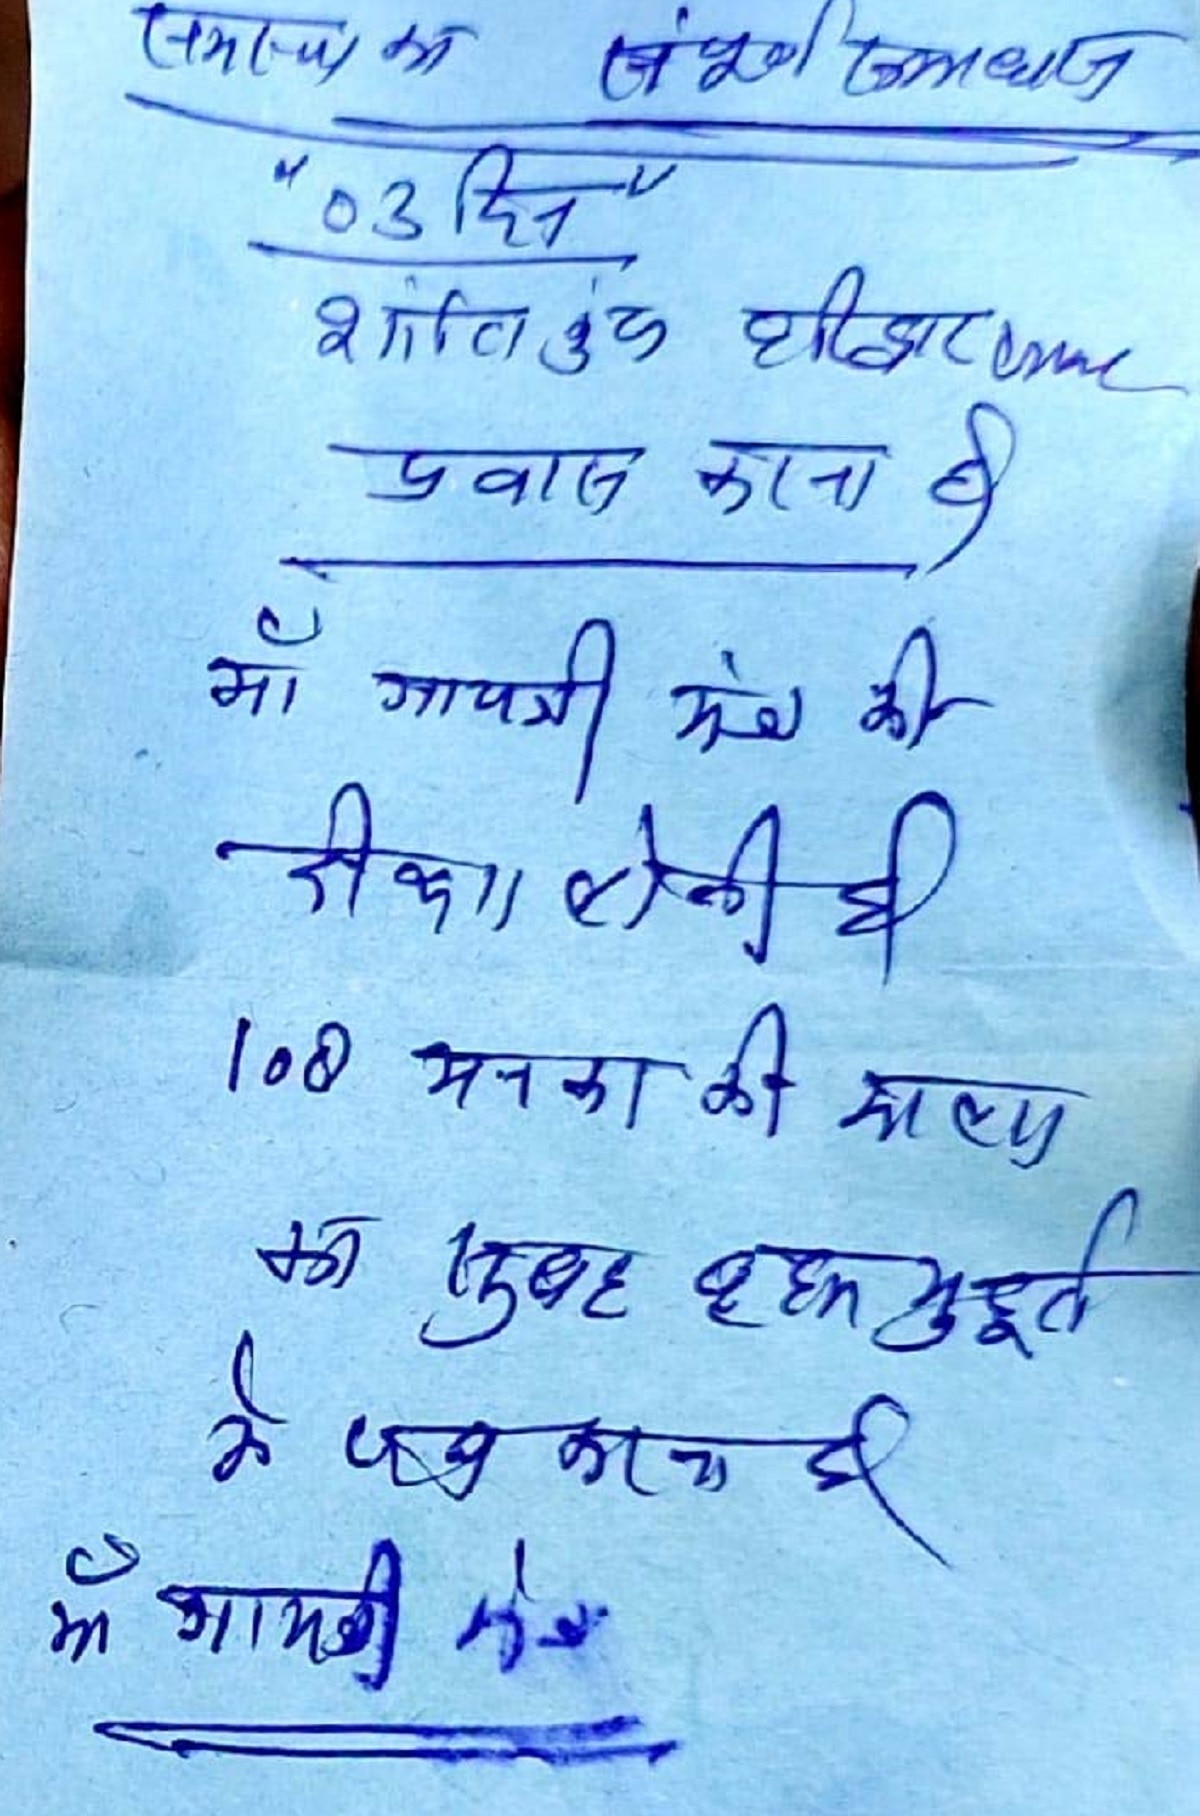 समस्या का संपूर्ण समाधान
"03 दिन"
शांति कुंज हरिद्वार
प्रवास करना है
माँ गायत्री मंत्र की
दीक्षा लेनी है
108 मनका की माला
का सुबह ब्रह्म मुहूर्त
में जाप करना है
माँ गायत्री मंत्र